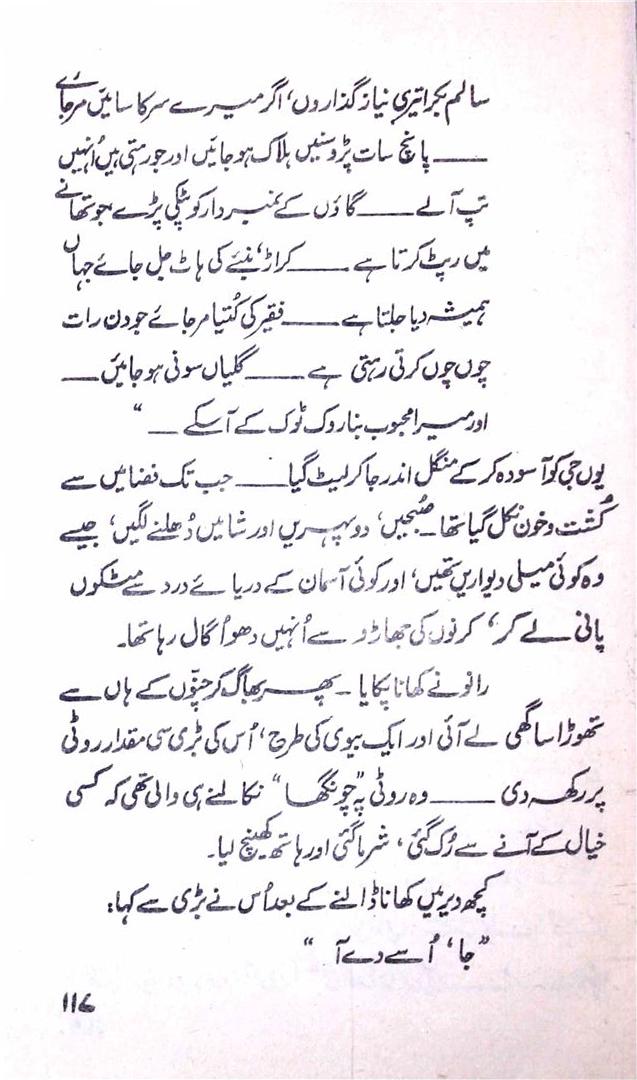 سالم بکرا تیری نیاز گذاروں، اگر میرے سر کا سائیں مرجائے
—— پانچ سات پڑوسنیں ہلاک ہوجائیں اور جو رہتی ہیں اُنہیں
تپ آلے —— گاؤں کے نمبردار کو ٹپکی پڑے جو تھانے
میں رپٹ کرتا ہے —— کراڑ، بنیئے کی ہاٹ جل جائے جہاں
ہمیشہ دیا جلتا ہے —— فقیر کی کُتیا مرجائے جو دن رات
چوں چوں کرتی رہتی ہے —— گلیاں سونی ہوجائیں ——
اور میرا محبوب بنا روک ٹوک کے آسکے —— "
یوں جی کو آسودہ کر کے منگل اندر جاکر لیٹ گیا —— جب تک فضا میں سے
کُشت و خون نکل گیا تھا۔ صُبحیں، دوپہریں اور شامیں دُھلنے لگیں، جیسے
وہ کوئی میلی دیواریں تھیں، اور کوئی آسمان کے دریائے درد سے مٹکوں
پانی لے کر، کرنوں کی جھاڑو سے اُنہیں دھو اُگال رہا تھا۔
رانو نے کھانا پکایا ۔ پھر بھاگ کر جِنّوں کے ہاں سے
تھوڑا سا گھی لے آئی اور ایک بیوی کی طرح، اُس کی بڑی سی مقدار روٹی
پر رکھ دی —— وہ روٹی پہ "چونگھا" نکالنے ہی والی تھی کہ کسی
خیال کے آنے سے رُک گئی، شرما گئی اور ہاتھ کھینچ لیا۔
کچھ دیر میں کھانا ڈالنے کے بعد اُس نے بڑی سے کہا:
"جا، اُسے دے آ "
۱۱۷